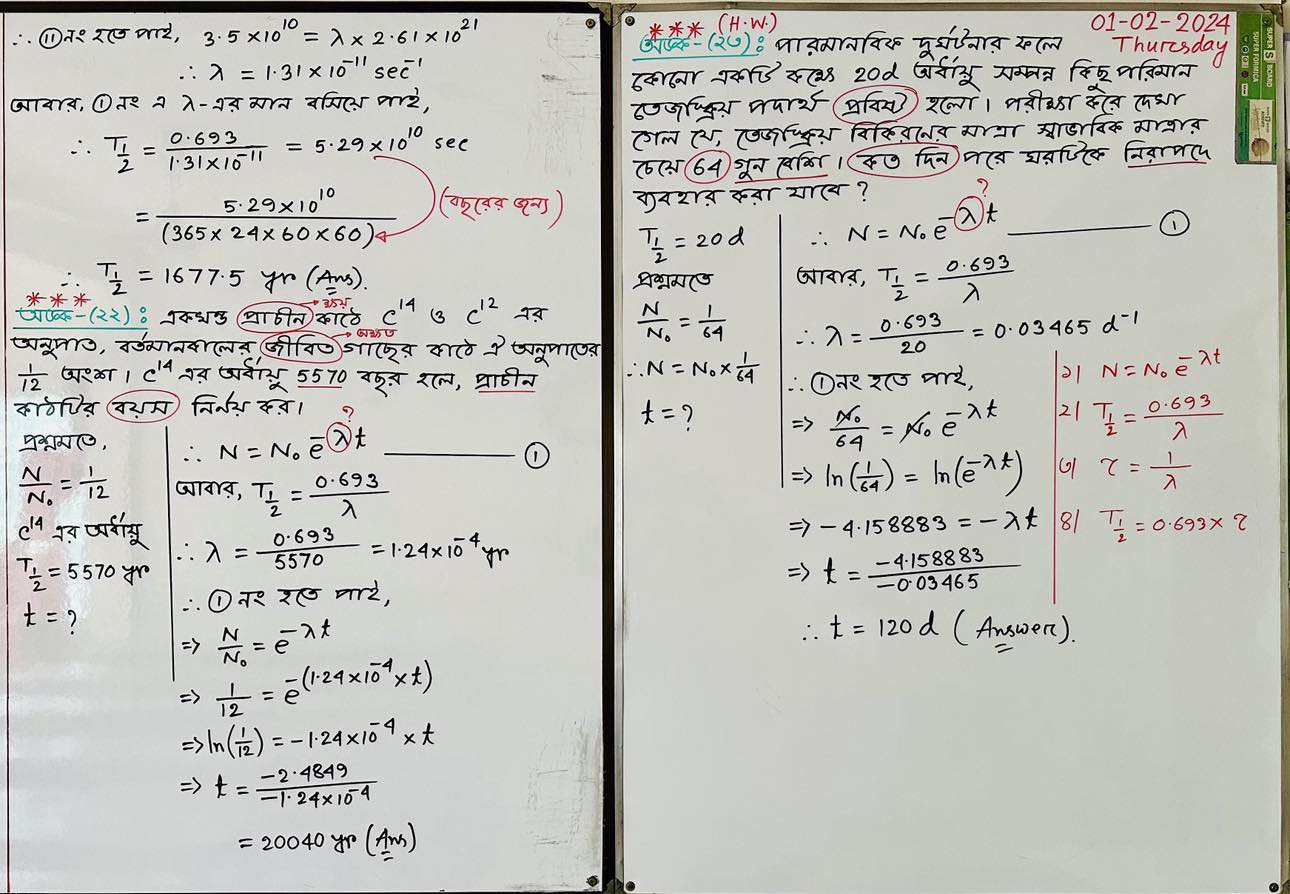 ∴ ⑪নং হতে পাই, 3.5×10^10 = λ × 2.61×10^21
∴ λ = 1.31×10^-11 sec^-1
আবার, ①নং এ λ-এর মান বসিয়ে পাই,
∴ T½ = 0.693/1.31×10^-11 = 5.29×10^10 sec
= 5.29×10^10/(365×24×60×60) (বছরের জন্য)
∴ T½ = 1677.5 yr (Ans).
*** অঙ্ক-(২২): একখন্ড প্রাচীন কাঠে C^14 ও C^12 এর
অনুপাত, বর্তমানকালের জীবিত গাছের কাঠে ঐ অনুপাতের
1/12 অংশ। C^14 এর অর্ধায়ু 5570 বছর হলে, প্রাচীন
কাঠটির বয়স নির্নয় কর।
প্রশ্নমতে,
N/N₀ = 1/12
C^14 এর অর্ধায়ু
T½ = 5570 yr
t = ?
∴ N = N₀ e^-λt ——— ①
?
আবার, T½ = 0.693/λ
∴ λ = 0.693/5570 = 1.24×10^-4 yr
∴ ①নং হতে পাই,
=> N/N₀ = e^-λt
=> 1/12 = e^-(1.24×10^-4 × t)
=> ln(1/12) = -1.24×10^-4 × t
=> t = -2.4849/-1.24×10^-4
= 20040 yr (Ans)
*** (H.W.)
01-02-2024
Thursday
অঙ্ক-(২৩): পারমানবিক দুর্ঘটনার ফলে
কোনো একটি কক্ষে 20d অর্ধায়ু সম্পন্ন কিছু পরিমান
তেজষ্ক্রিয় পদার্থ প্রবিষ্ট হলো। পরীক্ষা করে দেখা
গেল যে, তেজষ্ক্রিয় বিকিরনের মাত্রা স্বাভাবিক মাত্রার
চেয়ে 64 গুন বেশি। কত দিন পরে ঘরটিকে নিরাপদে
ব্যবহার করা যাবে ?
T½ = 20d
প্রশ্নমতে
N/N₀ = 1/64
∴ N = N₀ × 1/64
t = ?
?
∴ N = N₀ e^-λt ——— ①
আবার, T½ = 0.693/λ
∴ λ = 0.693/20 = 0.03465 d^-1
∴ ①নং হতে পাই,
=> N₀/64 = N₀ e^-λt
=> ln(1/64) = ln(e^-λt)
=> -4.158883 = -λt
=> t = -4.158883/-0.03465
∴ t = 120d (Answer).
১) N = N₀ e^-λt
২) T½ = 0.693/λ
৩) τ = 1/λ
৪) T½ = 0.693 × τ
SUPER S BOARD
SUPER FORMICA